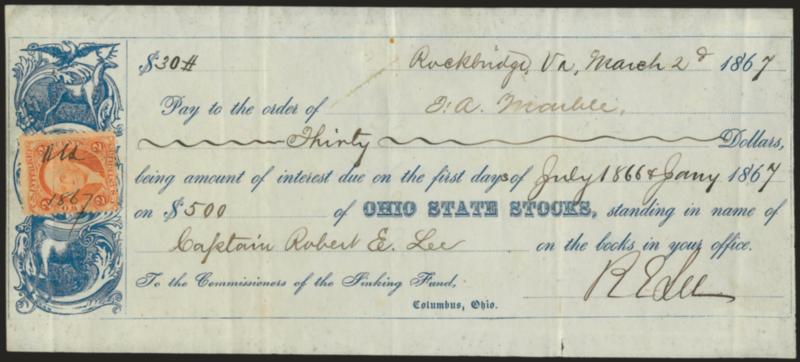 $30# Rockbridge, Va, March 2d 1867
Pay to the order of F. A. Marble,
Thirty Dollars,
being amount of interest due on the first days of July 1866 & Jany 1867
on $500 of OHIO STATE STOCKS, standing in name of
Captain Robert E. Lee on the books in your office.
To the Commissioners of the Sinking Fund, R E Lee
Columbus, Ohio.
1867